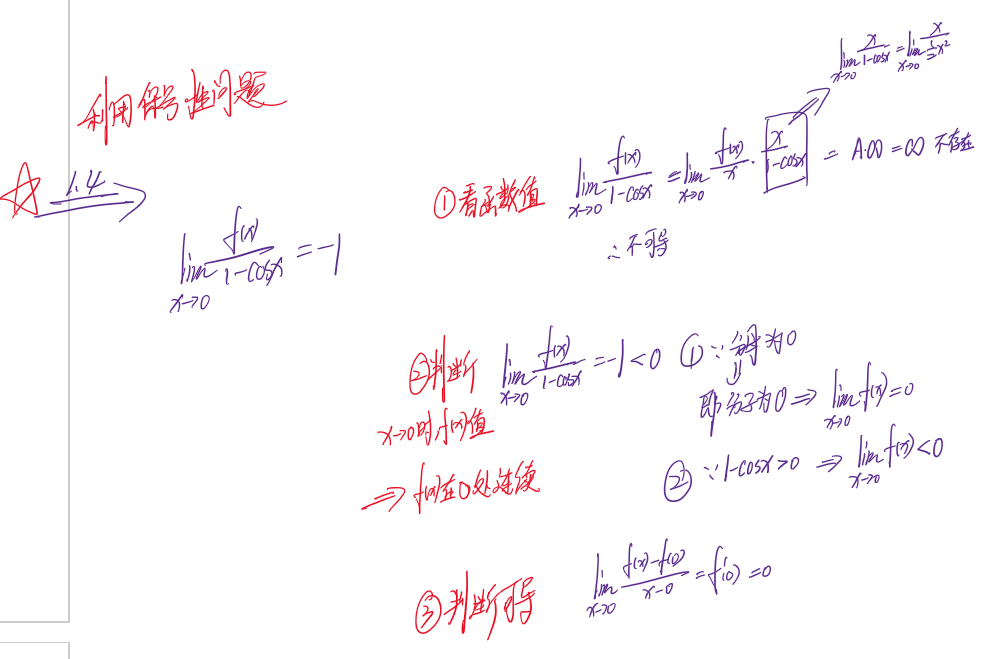 利用保号性问题
1.4
lim x→0 f(x)/(1-cosx) = -1
lim x→0 x/(1-cosx) = lim x→0 x/(½x²)
①看函数值 lim x→0 f(x)/(1-cosx) = lim x→0 f(x)/x · x/(1-cosx) = A·∞ = ∞ 不存在
∴不可导
②判断 lim x→0 f(x)/(1-cosx) = -1 < 0 ① ∵分母为0
x→0时,f(x)值
即分子为0 ⇒ lim x→0 f(x) = 0
⇒ f(x)在0处连续
② ∵1-cosx>0 ⇒ lim x→0 f(x) < 0
③判断可导 lim x→0 (f(x)-f(0))/(x-0) = f'(0) = 0